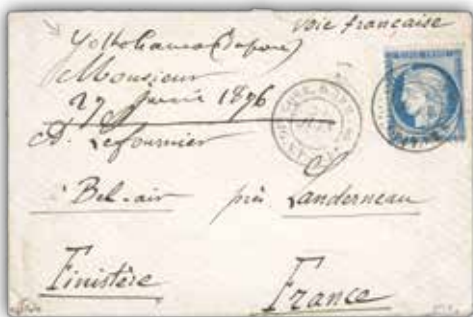 Voie française
Yokohama (Japon)
Monsieur
27 1876
A. Lefournier
Bel-air près Landerneau
Finistère France